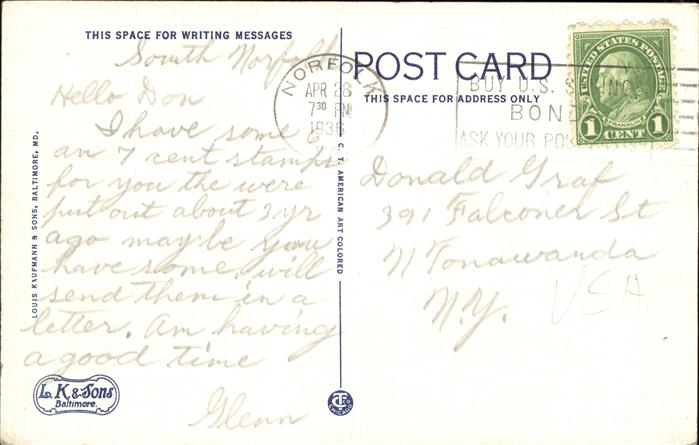 THIS SPACE FOR WRITING MESSAGES
South Norfolk
Hello Don
I have some
an 7 cent stamps
for you the were
put out about 3 yr
ago maybe you
have some. will
send them in a
letter. Am having
a good time
Glenn
LOUIS KAUFMANN & SONS, BALTIMORE, MD.
L. K. & Sons
Baltimore.
C. T. AMERICAN ART COLORED
POST CARD
THIS SPACE FOR ADDRESS ONLY
NORFOLK
APR 28
7 30 PM
1936
BUY U.S. S INGS
BOND
ASK YOUR POS
UNITED STATES POSTAGE
FRANKLIN
1 CENT 1
Donald Graf
391 Falconer St
N Tonawanda
N.Y.
USA